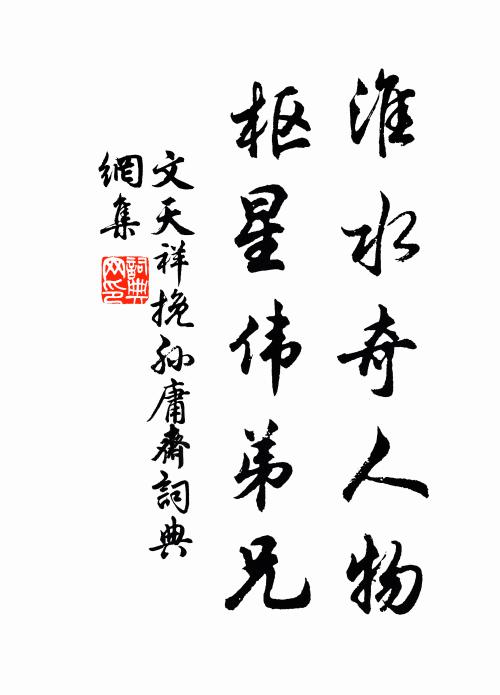 淮水奇人物
枢星伟弟兄
文天祥挽孙庸斋詞典
網集
詞典網印